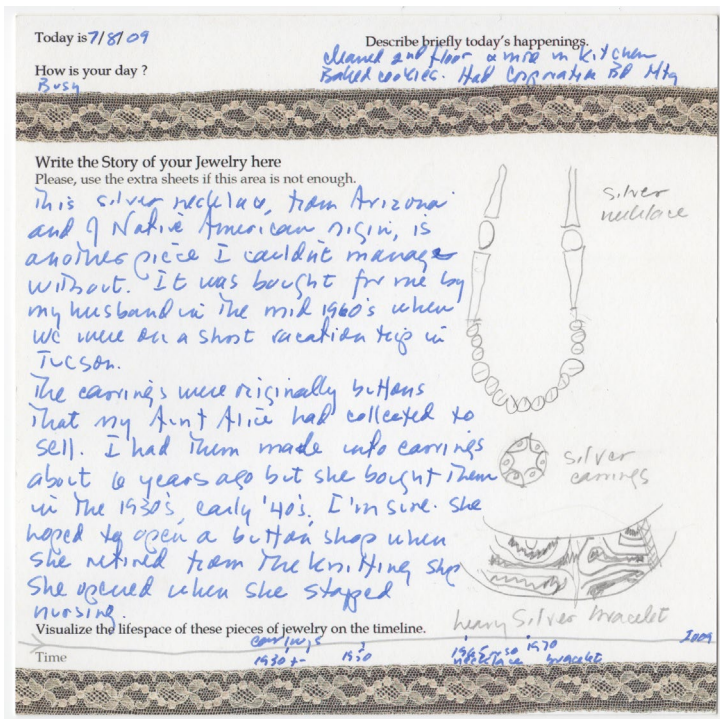 Today is 7/8/09
Describe briefly today's happenings.
cleaned and floor a mire in kitchen
How is your day ?
Baked cookies. Had Corporation Bd Mtg
Busy
Write the Story of your Jewelry here
Please, use the extra sheets if this area is not enough.
This silver necklace, from Arizona
and of Native American origin, is
another piece I couldn't manage
without. It was bought for me by
my husband in the mid 1960's when
we were on a short vacation trip in
Tucson.
silver
necklace
The earrings were originally buttons
that my Aunt Alice had collected to
sell. I had them made into earrings
about 6 years ago but she bought them
in the 1930's, early '40's, I'm sure. She
hoped to open a button shop when
she retired from the knitting shop
she opened when she stopped
nursing.
silver
earrings
heavy silver bracelet
Visualize the lifespace of these pieces of jewelry on the timeline.
Time
earrings
1930 +-
1950
1965 or so
necklace
1970
bracelet
2009